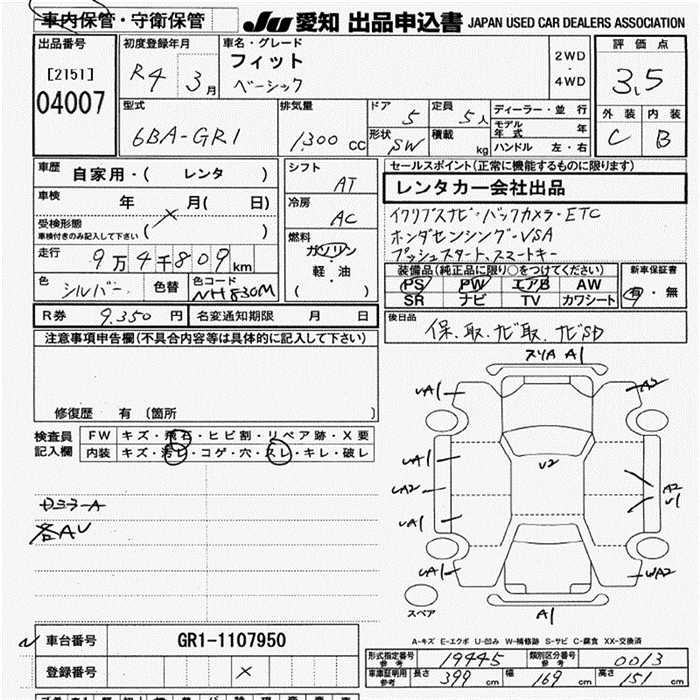 車内保管・守衛保管
JU 愛知 出品申込書 JAPAN USED CAR DEALERS ASSOCIATION
出品番号
[2151]
04007
初度登録年月
R4 3月
車名・グレード
フィット
ベーシック
2WD
・
4WD
評価点
3.5
外装 内装
C B
型式
6BA-GR1
排気量
1,300 CC
ドア 5
形状 SW
定員 5人
積載 kg
ディーラー・並行
モデル年式 年
ハンドル 左・右
車歴 自家用・( レンタ )
車検 年 月( 日)
受検形態
車検付きのみ記入して下さい ( )
走行 9万4千809km
色 シルバー 色替 色コード NH830M
シフト AT
冷房 AC
燃料
ガソリン
・
軽・油
( )
セールスポイント(正常に機能するものに限ります)
レンタカー会社出品
イクリプスナビ・バックカメラ・ETC
ホンダセンシング・VSA
プッシュスタート、スマートキー
装備品(純正品に限り○をつけてください)
PS PW エアB AW
SR ナビ TV カワシート
新車保証書
有・無
R券 9,350円 名変通知期限 月 日
後日品
保、取、ナビ取、ナビSD
注意事項申告欄(不具合内容等は具体的に記入して下さい)
修復歴 有(箇所 )
検査員記入欄
FW キズ・飛石・ヒビ割・リペア跡・X要
内装 キズ・汚レ・コゲ・穴・スレ・キレ・破レ
各AU
スリA A1
UA1
A2
UA1
UA2
UA1
U2
A2
U1
UA1
WA2
A1
スペア
A-キズ E-エクボ U-凹み W-補修跡 S-サビ C-腐食 XX-交換済
車台番号 GR1-1107950
登録番号 ×
形式指定番号 参考 19445
類別区分番号 参考 0013
車庫証明用 参考 長さ 399 cm 幅 169 cm 高さ 151 cm